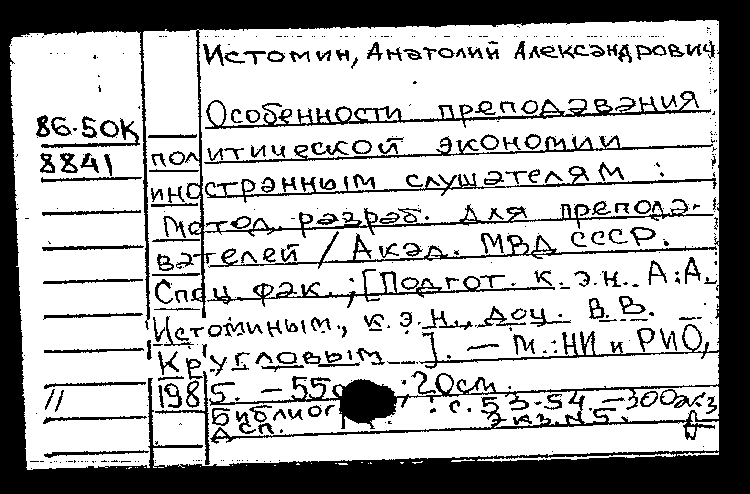 Истомин, Анатолий Александрович
Особенности преподавания
86-50К
8841
политической экономии
иностранным слушателям :
Метод. разраб. для препода-
вателей / Акад. МВД СССР.
Спец. фак. ; [Подгот. к.э.н. А.А.
Истоминым, к.э.н., доц. В.В.
Кругловым ]. — М.: НИ и РИО,
1985. — 55с ; 20см.
//
Библиогр : с. 53-54 — 300экз
Экз. N5.
ДСП.